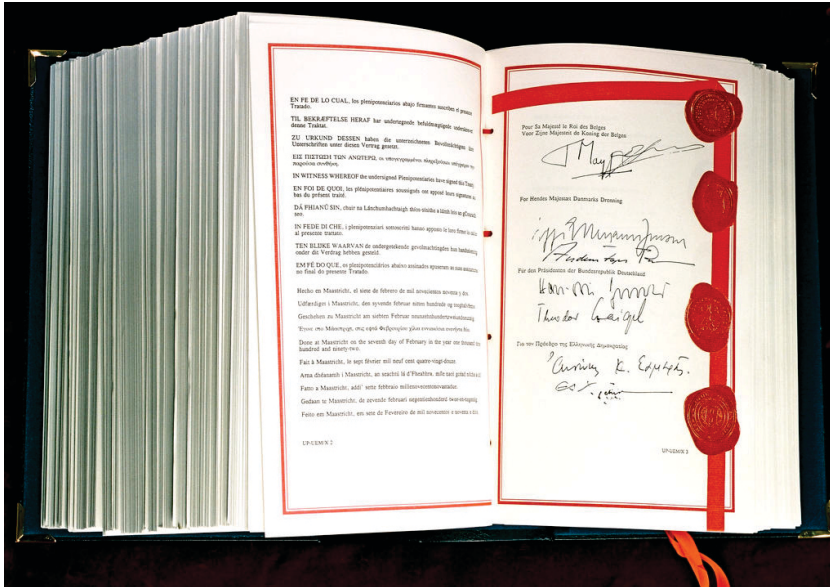 EN FE DE LO CUAL, los plenipotenciarios abajo firmantes suscriben el presente
Tratado.
TIL BEKRÆFTELSE HERAF har undertegnede befuldmægtigede underskrevet
denne Traktat.
ZU URKUND DESSEN haben die unterzeichneten Bevollmächtigten ihre
Unterschriften unter diesen Vertrag gesetzt.
ΕΙΣ ΠΙΣΤΩΣΗ ΤΩΝ ΑΝΩΤΕΡΩ, οι υπογεγραμμένοι πληρεξούσιοι υπέγραψαν την
παρούσα συνθήκη.
IN WITNESS WHEREOF the undersigned Plenipotentiaries have signed this Treaty
EN FOI DE QUOI, les plénipotentiaires soussignés ont apposé leurs signatures au
bas du présent traité.
DÁ FHIANÚ SIN, chuir na Lánchumhachtaigh thíos-sínithe a lámh leis an gConradh
seo.
IN FEDE DI CHE, i plenipotenziari sottoscritti hanno apposto le loro firme in calce
al presente trattato.
TEN BLIJKE WAARVAN de ondergetekende gevolmachtigden hun handtekening
onder dit Verdrag hebben gesteld.
EM FÉ DO QUE, os plenipotenciários abaixo assinados apuseram as suas assinaturas
no final do presente Tratado.
Hecho en Maastricht, el siete de febrero de mil novecientos noventa y dos.
Udfærdiget i Maastricht, den syvende februar nitten hundrede og
Geschehen zu Maastricht am siebten Februar
Έγινε στο Μάαστριχτ, στις εφτά Φεβρουαρίου χίλια εννιακόσια ενενήντα δύο.
Done at Maastricht on the seventh day of February in the year one thousand nine
hundred and ninety-two.
Fait à Maastricht, le sept février mil neuf cent quatre-vingt-douze.
Arna dhéanamh i Maastricht, an seachtú lá d'Fheabhra, míle naoi gcéad
Fatto a Maastricht, addì' sette febbraio millenovecentonovantadue.
Gedaan te Maastricht, de zevende februari negentienhonderd twee-en-negentig.
Feito em Maastricht, em sete de Fevereiro de mil novecentos e noventa e dois.
UP-UEM/X 2
Pour Sa Majesté le Roi des Belges
Voor Zijne Majesteit de Koning der Belgen
For Hendes Majestæt Danmarks Dronning
Für den Präsidenten der Bundesrepublik Deutschland
Theodor Waigel
Για τον Πρόεδρο της Ελληνικής Δημοκρατίας
UP-UEM/X 3